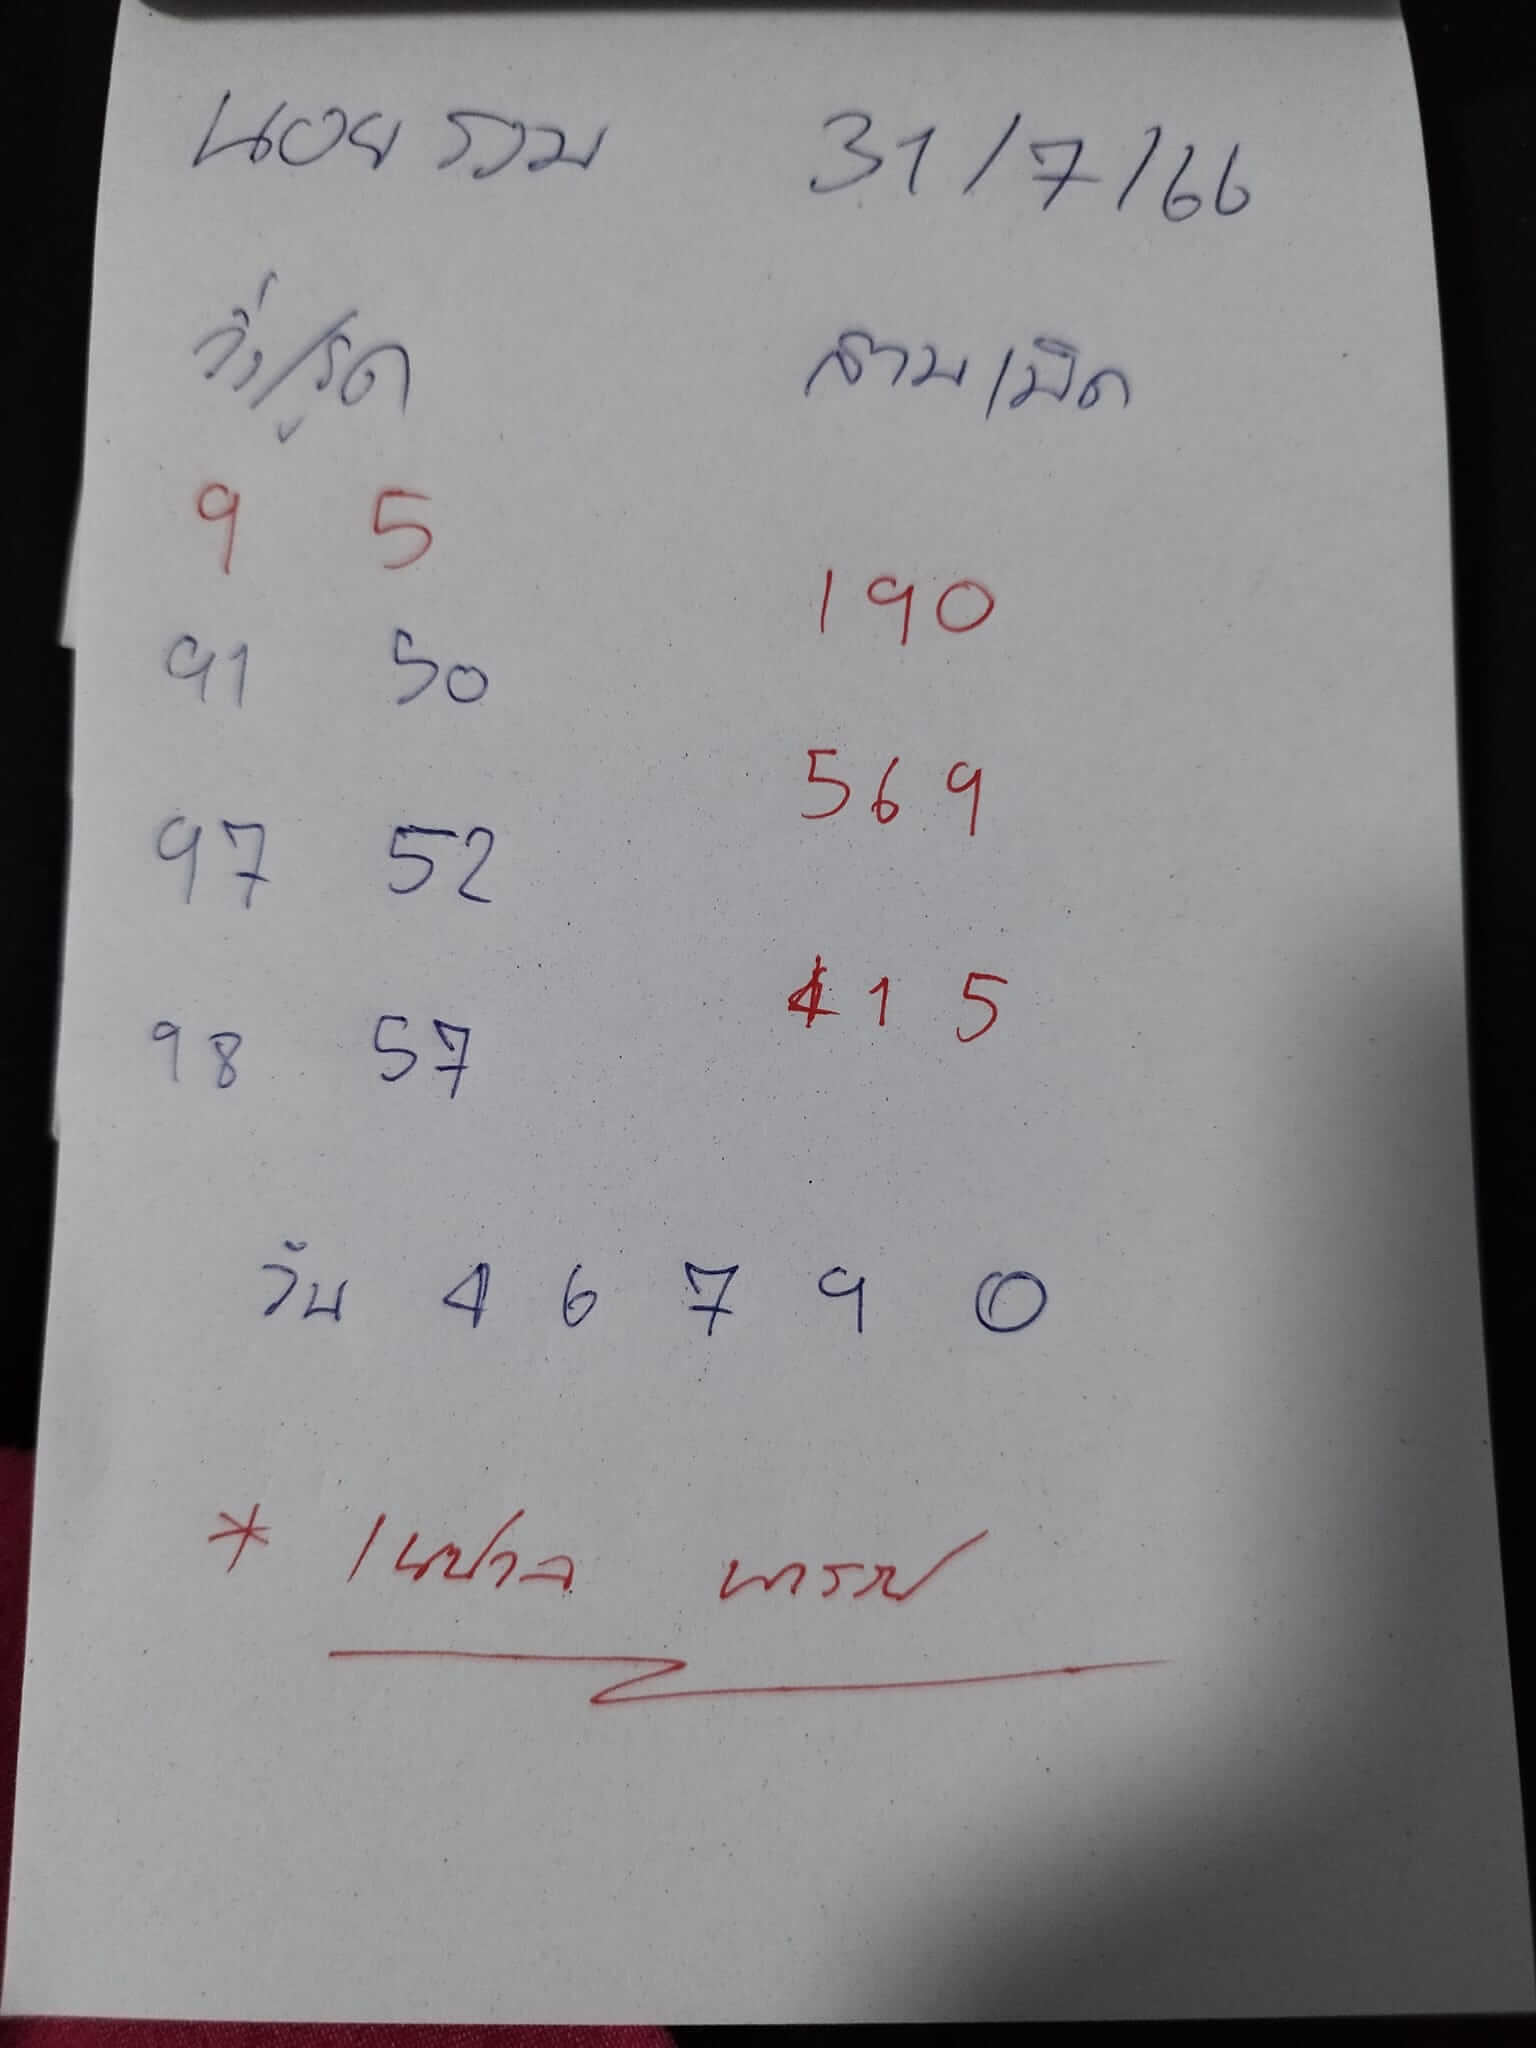 นอย รวม 31/7/66
วิ่ง/รูด สามเม็ด
9 5
190
91 50
569
97 52
415
98 57
วิน 4 6 7 9 0
*